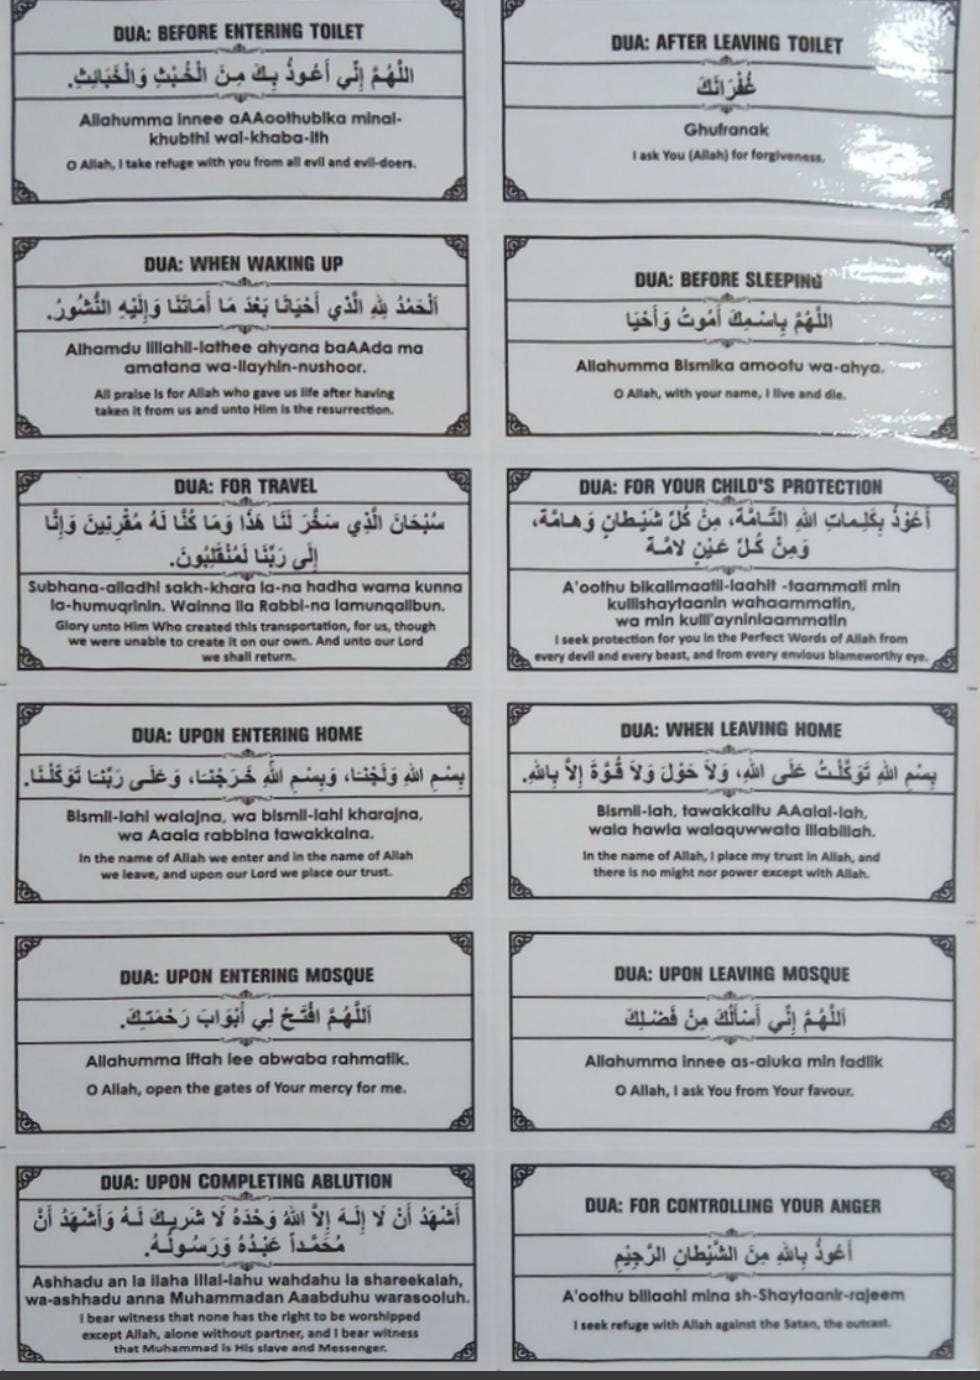 DUA: BEFORE ENTERING TOILET
اللَّهُمَّ إِنِّي أَعُوذُ بِكَ مِنَ الْخُبْثِ وَالْخَبَائِثِ.
Allahumma innee aAAoothubika minal-
khubthi wal-khaba-ith
O Allah, I take refuge with you from all evil and evil-doers.
DUA: AFTER LEAVING TOILET
غُفْرَانَكَ
Ghufranak
I ask You (Allah) for forgiveness.
DUA: WHEN WAKING UP
اَلْحَمْدُ لِلهِ الَّذِي أَحْيَانَا بَعْدَ مَا أَمَاتَنَا وَإِلَيْهِ النُّشُورُ.
Alhamdu lillahil-lathee ahyana baAAda ma
amatana wa-ilayhin-nushoor.
All praise is for Allah who gave us life after having
taken it from us and unto Him is the resurrection.
DUA: BEFORE SLEEPING
اللَّهُمَّ بِاسْمِكَ أَمُوتُ وَأَحْيَا
Allahumma Bismika amootu wa-ahya.
O Allah, with your name, I live and die.
DUA: FOR TRAVEL
سُبْحَانَ الَّذِي سَخَّرَ لَنَا هَذَا وَمَا كُنَّا لَهُ مُقْرِنِينَ وَإِنَّا
إِلَى رَبِّنَا لَمُنْقَلِبُونَ.
Subhana-alladhi sakh-khara la-na hadha wama kunna
la-humuqrinin. Wainna ila Rabbi-na lamunqalibun.
Glory unto Him Who created this transportation, for us, though
we were unable to create it on our own. And unto our Lord
we shall return.
DUA: FOR YOUR CHILD'S PROTECTION
أَعُوْذُ بِكَلِمَاتِ اللهِ التَّامَّةِ، مِنْ كُلِّ شَيْطَانٍ وَهَامَّةٍ،
وَمِنْ كُلِّ عَيْنٍ لَامَّةٍ
A'oothu bikalimaatil-laahit -taammati min
kullishaytaanin wahaammatin,
wa min kulli'ayninlaammatin
I seek protection for you in the Perfect Words of Allah from
every devil and every beast, and from every envious blameworthy eye.
DUA: UPON ENTERING HOME
بِسْمِ اللهِ وَلَجْنَا، وَبِسْمِ اللهِ خَرَجْنَا، وَعَلَى رَبِّنَا تَوَكَّلْنَا.
Bismil-lahi walajna, wa bismil-lahi kharajna,
wa Aaala rabbina tawakkalna.
In the name of Allah we enter and in the name of Allah
we leave, and upon our Lord we place our trust.
DUA: WHEN LEAVING HOME
بِسْمِ اللهِ تَوَكَّلْتُ عَلَى اللهِ، وَلاَ حَوْلَ وَلاَ قُوَّةَ إِلاَّ بِاللهِ.
Bismil-lah, tawakkaltu AAalal-lah,
wala hawla walaquwwata illabillah.
In the name of Allah, I place my trust in Allah, and
there is no might nor power except with Allah.
DUA: UPON ENTERING MOSQUE
اَللَّهُمَّ افْتَحْ لِي أَبْوَابَ رَحْمَتِكَ.
Allahumma iftah lee abwaba rahmatik.
O Allah, open the gates of Your mercy for me.
DUA: UPON LEAVING MOSQUE
اَللَّهُمَّ إِنِّي أَسْأَلُكَ مِنْ فَضْلِكَ
Allahumma innee as-aluka min fadlik
O Allah, I ask You from Your favour.
DUA: UPON COMPLETING ABLUTION
أَشْهَدُ أَنْ لَا إِلَهَ إِلاَّ اللهُ وَحْدَهُ لَا شَرِيكَ لَهُ وَأَشْهَدُ أَنَّ
مُحَمَّداً عَبْدُهُ وَرَسُولُهُ.
Ashhadu an la ilaha illal-lahu wahdahu la shareekalah,
wa-ashhadu anna Muhammadan Aaabduhu warasooluh.
I bear witness that none has the right to be worshipped
except Allah, alone without partner, and I bear witness
that Muhammad is His slave and Messenger.
DUA: FOR CONTROLLING YOUR ANGER
أَعُوذُ بِاللهِ مِنَ الشَّيْطَانِ الرَّجِيْمِ
A'oothu billaahi mina sh-Shaytaanir-rajeem
I seek refuge with Allah against the Satan, the outcast.